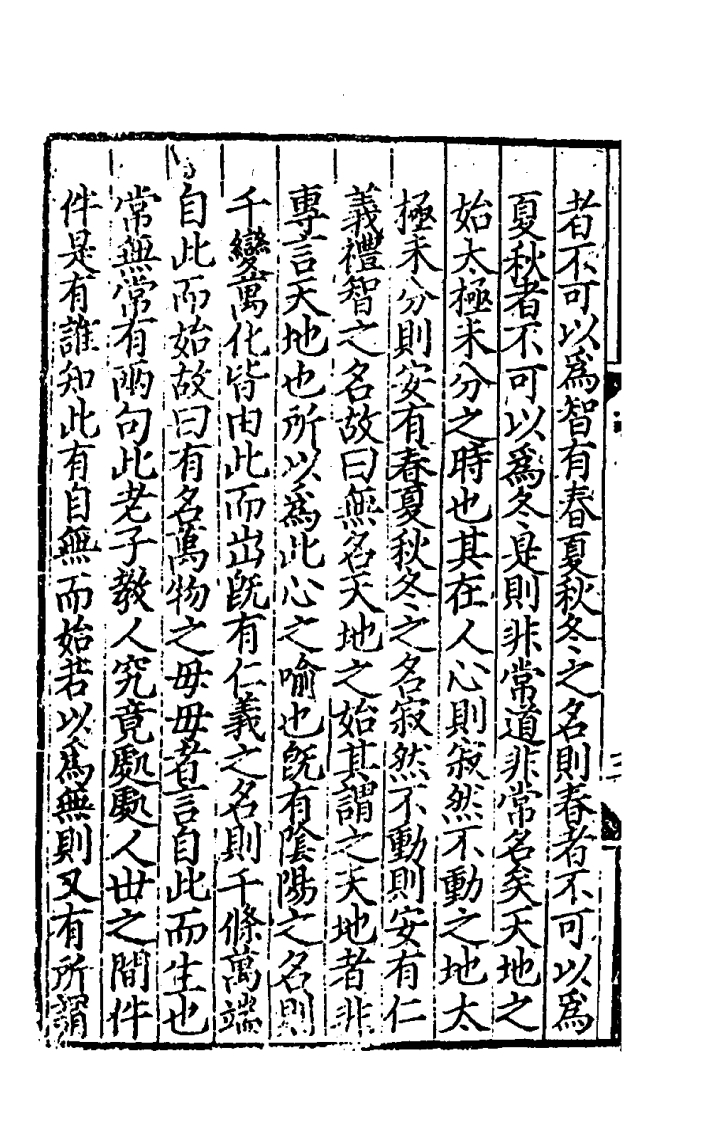 者不可以爲智有春夏秋冬之名則春者不可以爲
夏秋者不可以爲冬是則非常道非常名矣天地之
始太極未分之時也其在人心則寂然不動之地太
極未分則安有春夏秋冬之名寂然不動則安有仁
義禮智之名故曰無名天地之始其謂之天地者非
專言天地也所以爲此心之喻也既有陰陽之名則
千變萬化皆由此而出既有仁義之名則千條萬端
自此而始故曰有名萬物之母母者言自此而生也
常無常有兩句此老子教人究竟處處人世之間件
件是有誰知此有自無而始若以爲無則又有所謂